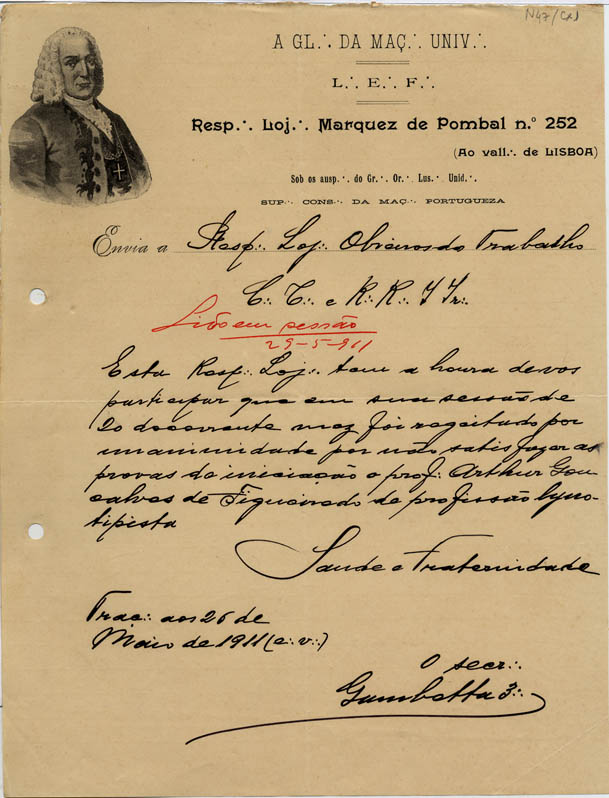 N47/CX1
A GL∴ DA MAÇ∴ UNIV∴
L∴ E∴ F∴
Resp∴ Loj∴ Marquez de Pombal n.º 252
(Ao vall∴ de LISBOA)
Sob os ausp∴ do Gr∴ Or∴ Lus∴ Unid∴
SUP∴ CONS∴ DA MAÇ∴ PORTUGUEZA
Envia a Resp∴ Loj∴ Obreiros do Trabalho
C∴ C∴ e R∴ R∴ I Ir∴
Lido em sessão
29-5-911
Esta Resp∴ Loj∴ tem a honra de vos
participar que em sua sessão de
20 do corrente mez foi regeitado por
unanimidade por não satisfazer as
provas da iniciação o prof∴ Arthur Gon-
çalves de Figueiredo de profissão lyno-
tipista
Saude e Fraternidade
Trac∴ aos 26 de
Maio de 1911 (e∴ v∴)
O secr∴
Gambetta 3∴